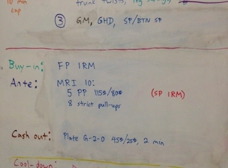 10 min
cap
③ GM, GHD,
Buy-in: FP 1RM
Ante: MRI 10:
5 PP 115#/80# (FP 1RM)
8 strict pull-ups
Cash out: Plate G-2-O 45#/25#, 2 min
Cash-down: